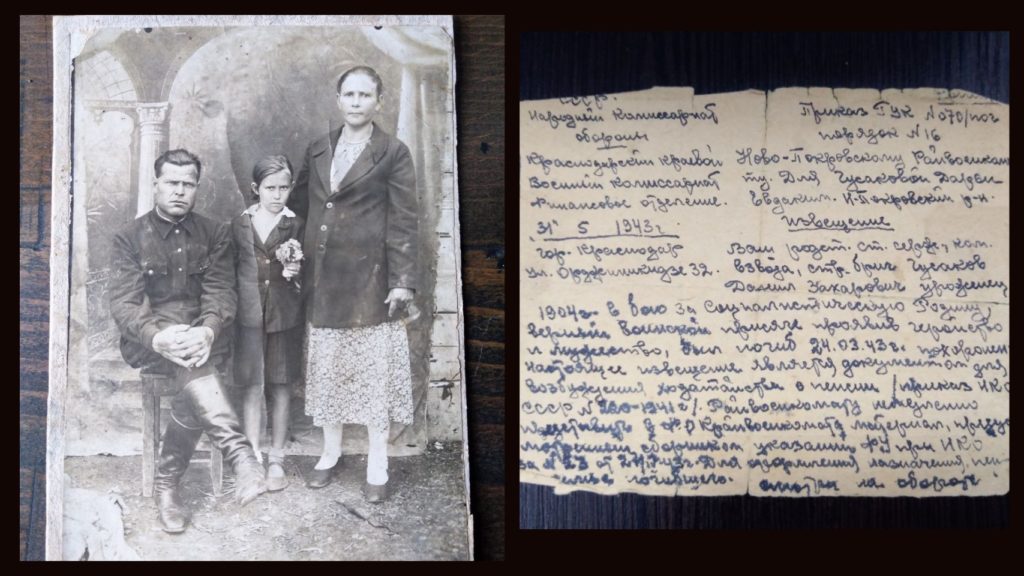 СССР.
Народный Комиссариат
обороны
Краснодарский Краевой
Военный Комиссариат
Финансовое отделение.
"31" 5 1943 г.
гор. Краснодар
ул. Орджоникидзе 32.
Приказ ГУК № 070/пог
порядок № 16
Ново-Покровскому Райвоенкома
ту. Для Гусаковой Дарьи
Евдаким. Н-Покровский р-н.
Извещение
Ваш родст. ст. серж., ком.
взвода, стр. бриг Гусаков
Даниил Захарович уроженец
1904 г. в бою за Социалистическую Родину,
верный воинской присяге проявив геройство
и мужество, был погиб 24.03.43 г. похоронен
настоящее извещение является документом для
возбуждения ходатайства о пенсии /приказ НКО
СССР № -1941 г/. Райвоенкомату немедленно
в Крайвоенкомата материал, предус
указаний ФУ при НКО
за № 23 от Для оформления назначения, пен
погибшего. на обороте